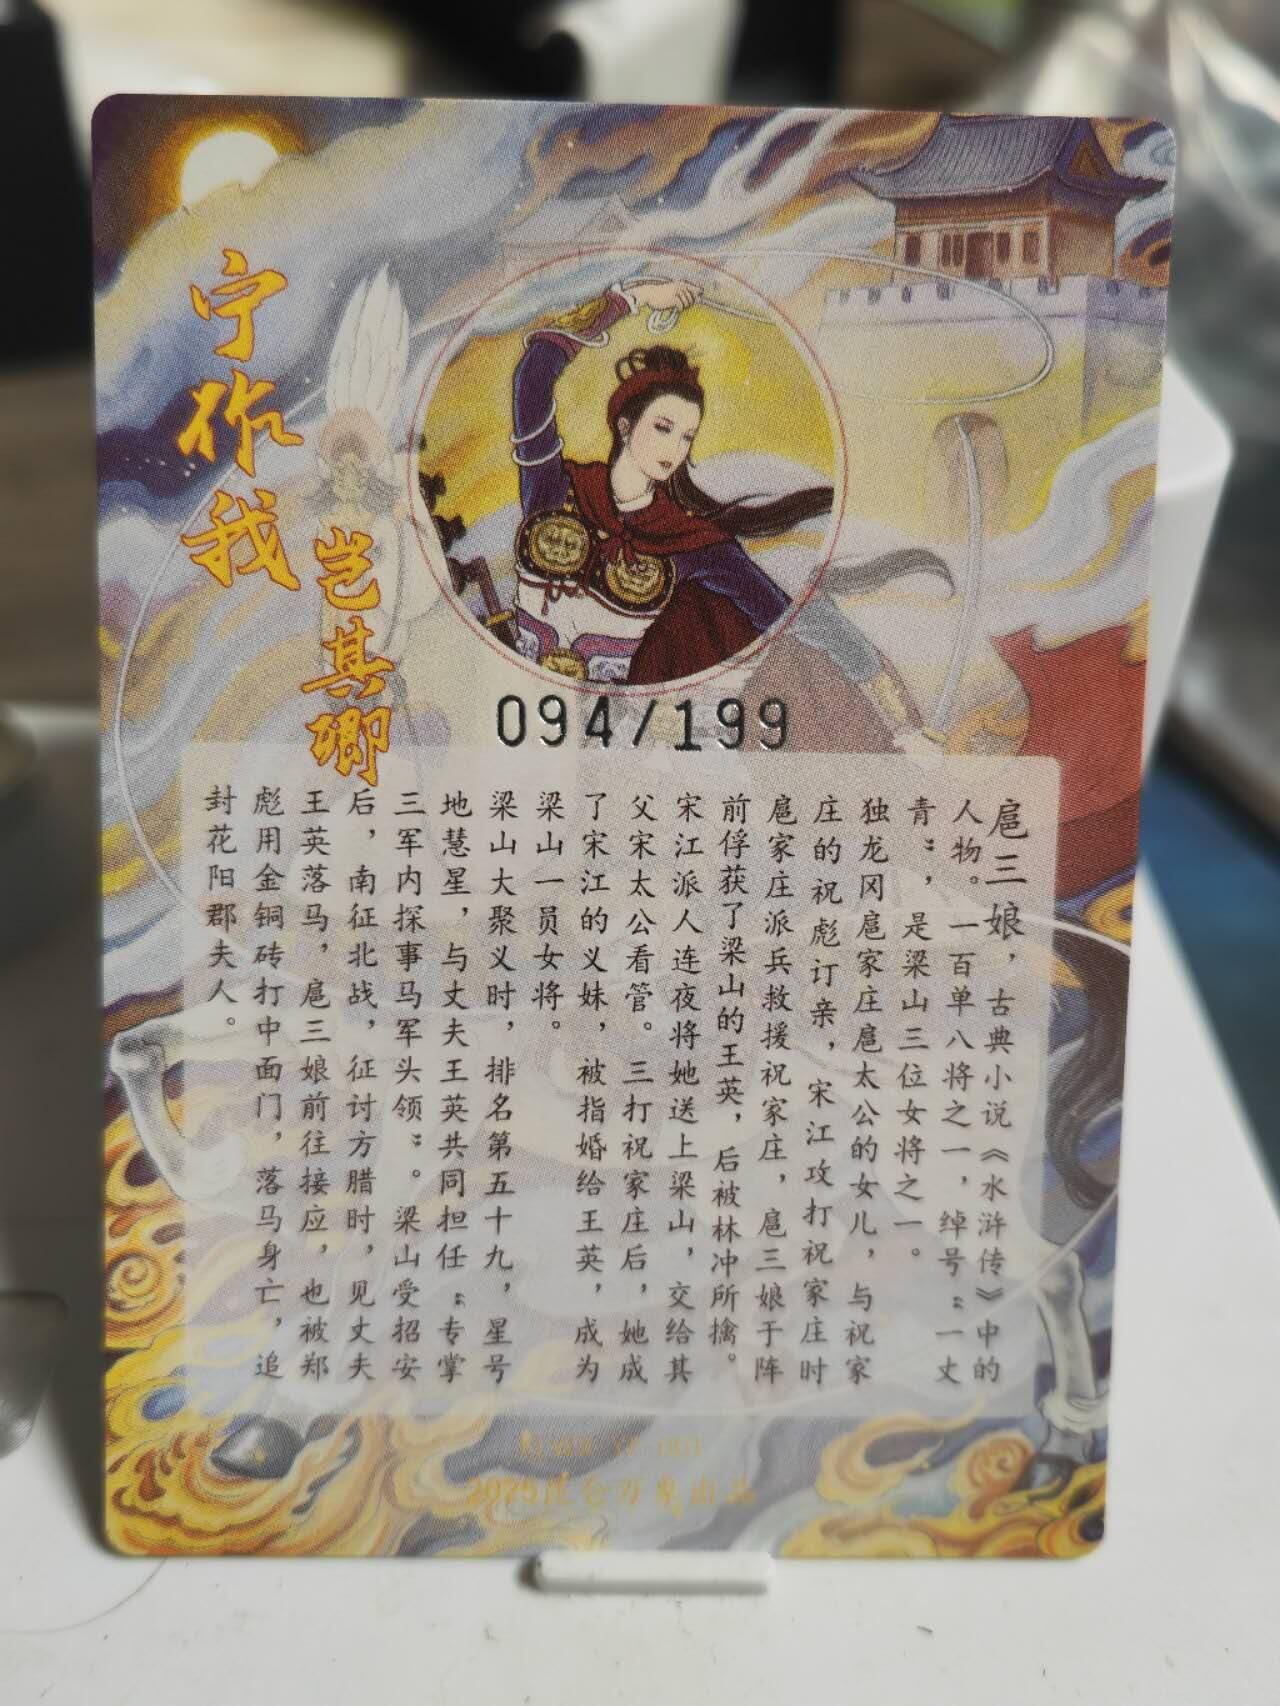 宁作我
岂其卿
094/199
扈三娘，古典小说《水浒传》中的
人物。一百单八将之一，绰号“一丈
青”，是梁山三位女将之一。
独龙冈扈家庄扈太公的女儿，与祝家
庄的祝彪订亲，宋江攻打祝家庄时
扈家庄派兵救援祝家庄，扈三娘于阵
前俘获了梁山的王英，后被林冲所擒。
宋江派人连夜将她送上梁山，交给其
父宋太公看管。三打祝家庄后，她成
了宋江的义妹，被指婚给王英，成为
梁山一员女将。
梁山大聚义时，排名第五十九，星号
地慧星，与丈夫王英共同担任“专掌
三军内探事马军头领”。梁山受招安
后，南征北战，征讨方腊时，见丈夫
王英落马，扈三娘前往接应，也被郑
彪用金铜砖打中面门，落马身亡，追
封花阳郡夫人。
2025昆仑万象出品